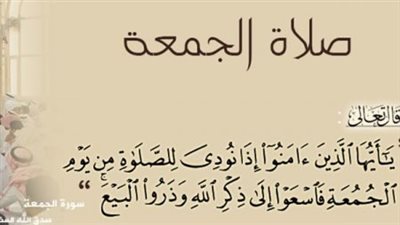 صلاة الجمعة
قال تعالى :
يَـٰٓأَيُّهَا ٱلَّذِينَ ءَامَنُوٓا۟ إِذَا نُودِىَ لِلصَّلَوٰةِ مِن يَوْمِ
ٱلْجُمُعَةِ فَٱسْعَوْا۟ إِلَىٰ ذِكْرِ ٱللَّهِ وَذَرُوا۟ ٱلْبَيْعَ ۚ "
سورة الجمعة
صدق الله